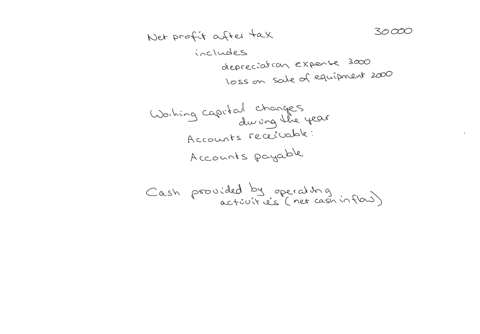 Net profit after tax 30000
includes
depreciation expense 3000
loss on sale of equipment 2000
Working capital changes
during the year
Accounts receivable:
Accounts payable
Cash provided by operating
activities (net cash inflow)